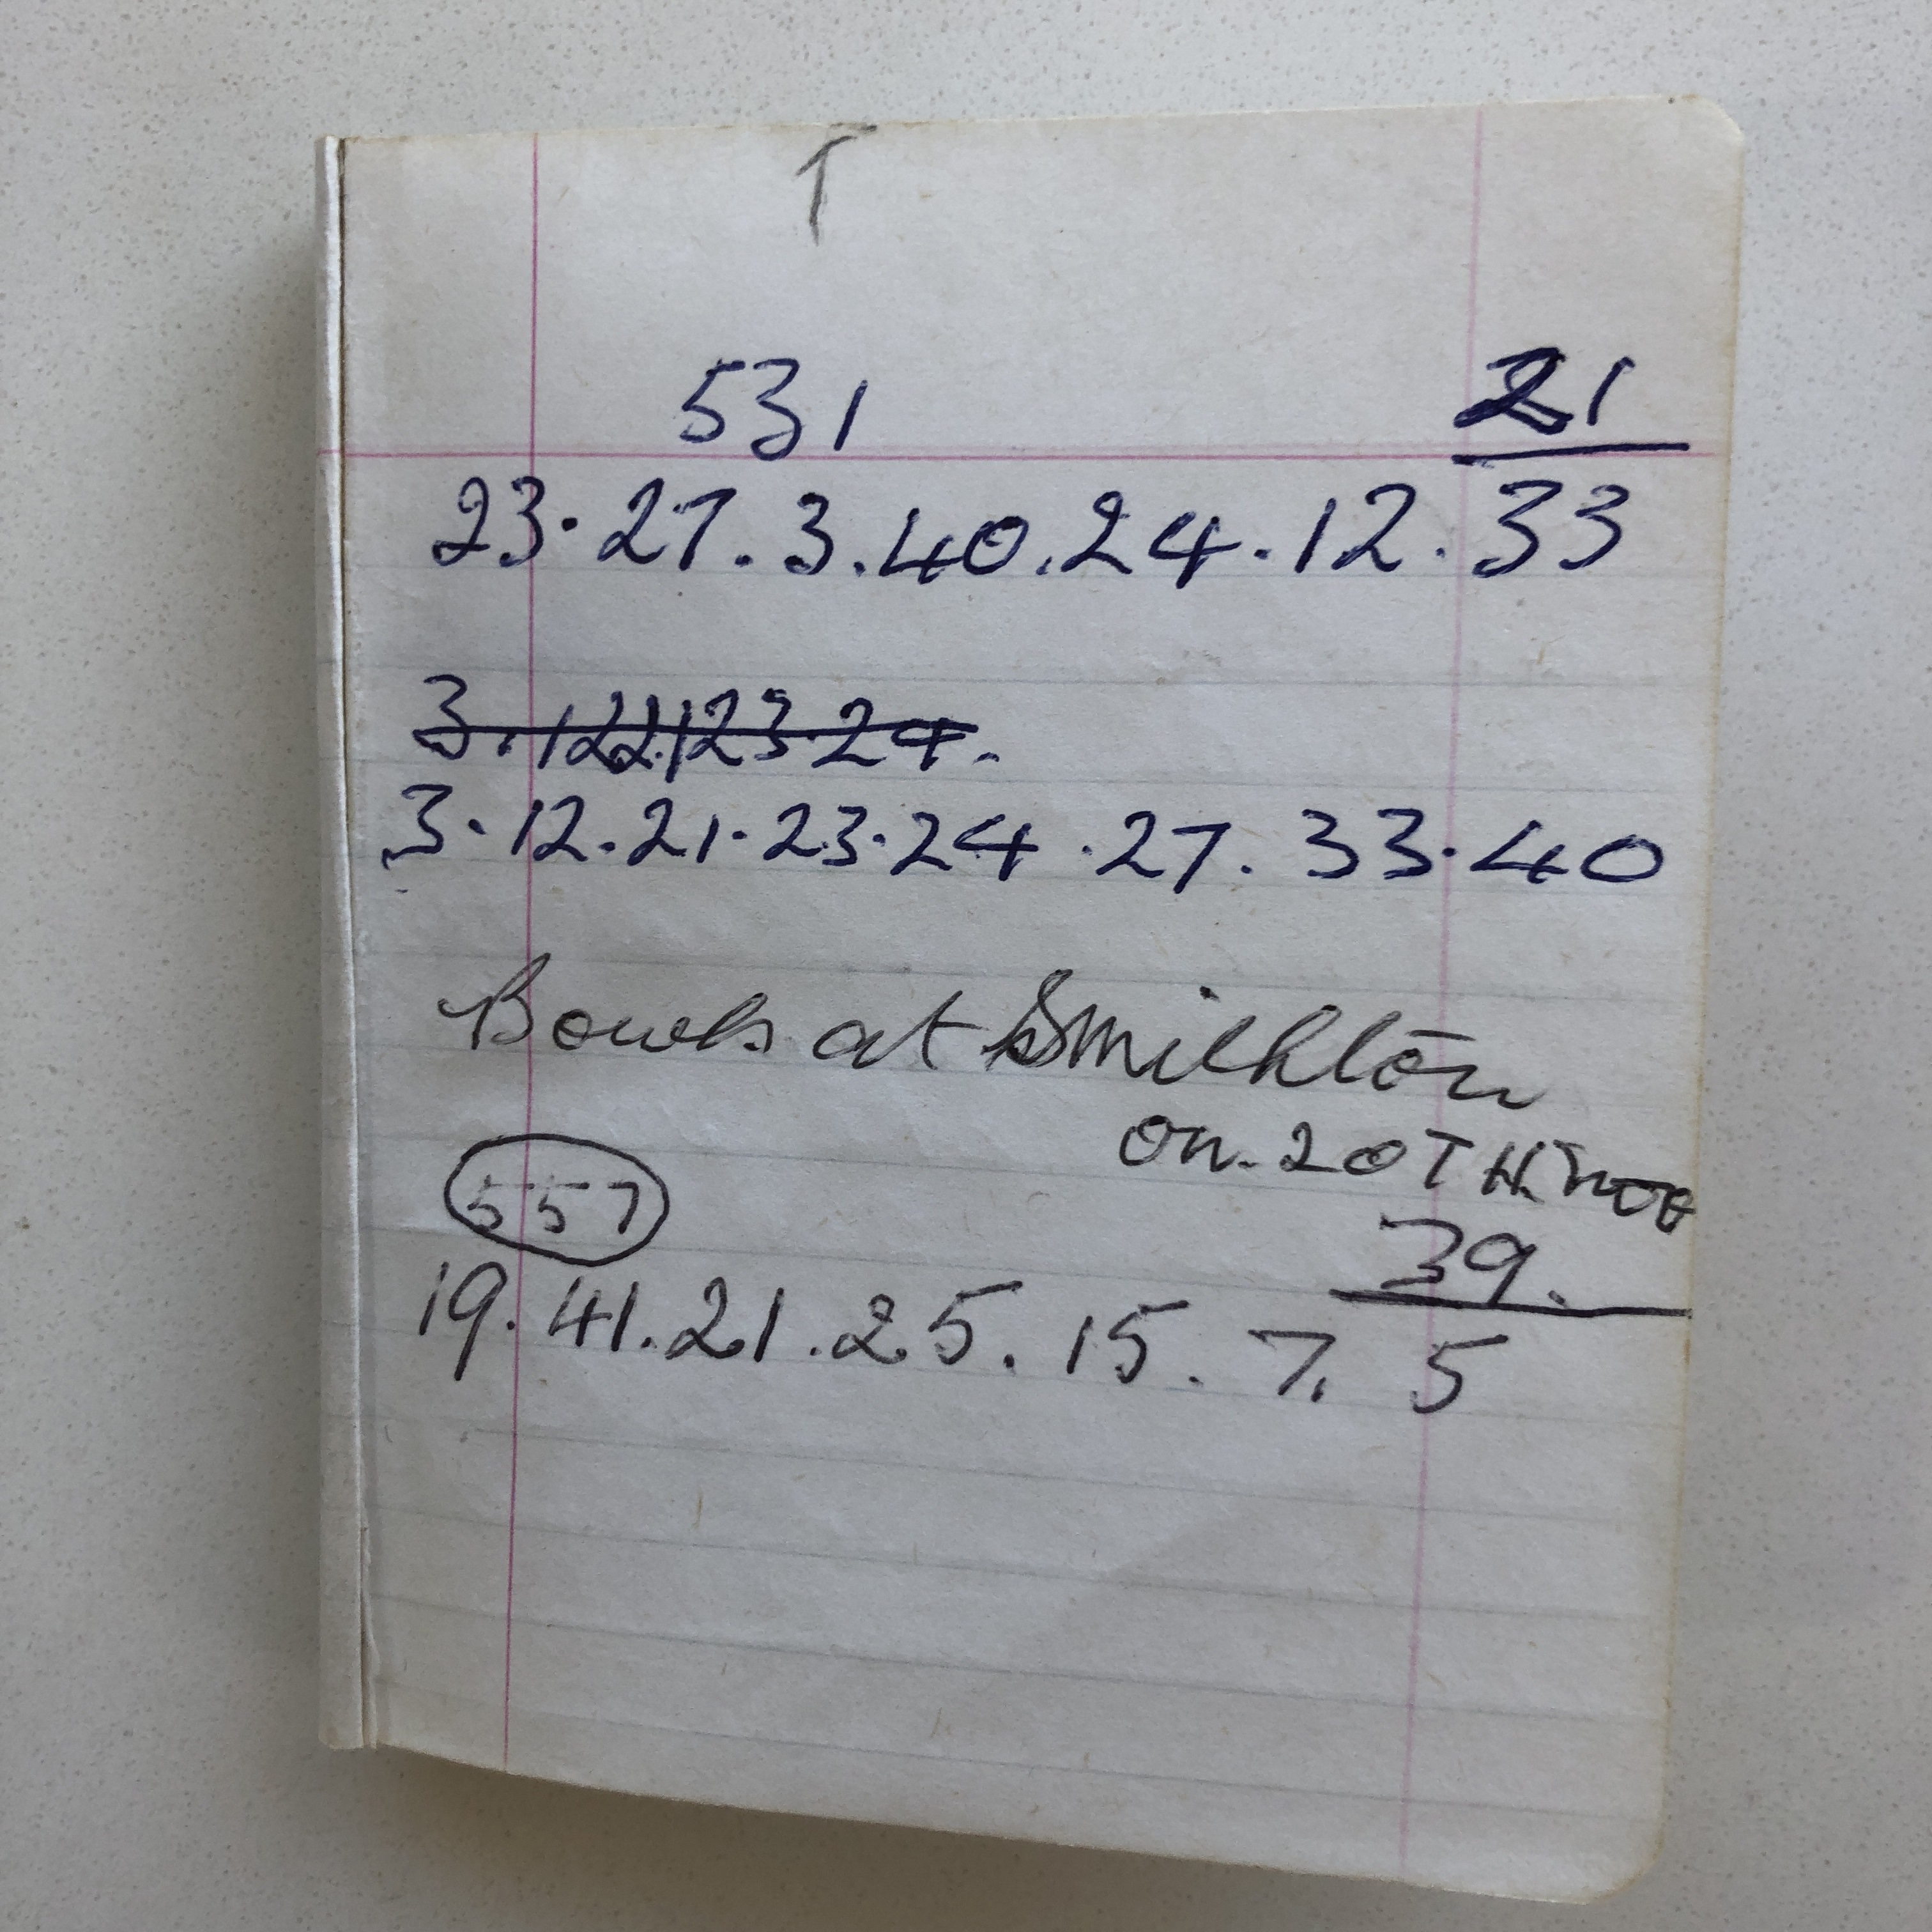 T
531 21
23.27.3.40.24.12.33
3.12.21.23.24.
3.12.21.23.24.27.33.40
Bowls at Smithton
on 20TH. Nov
557
39.
19.41.21.25.15.7.5